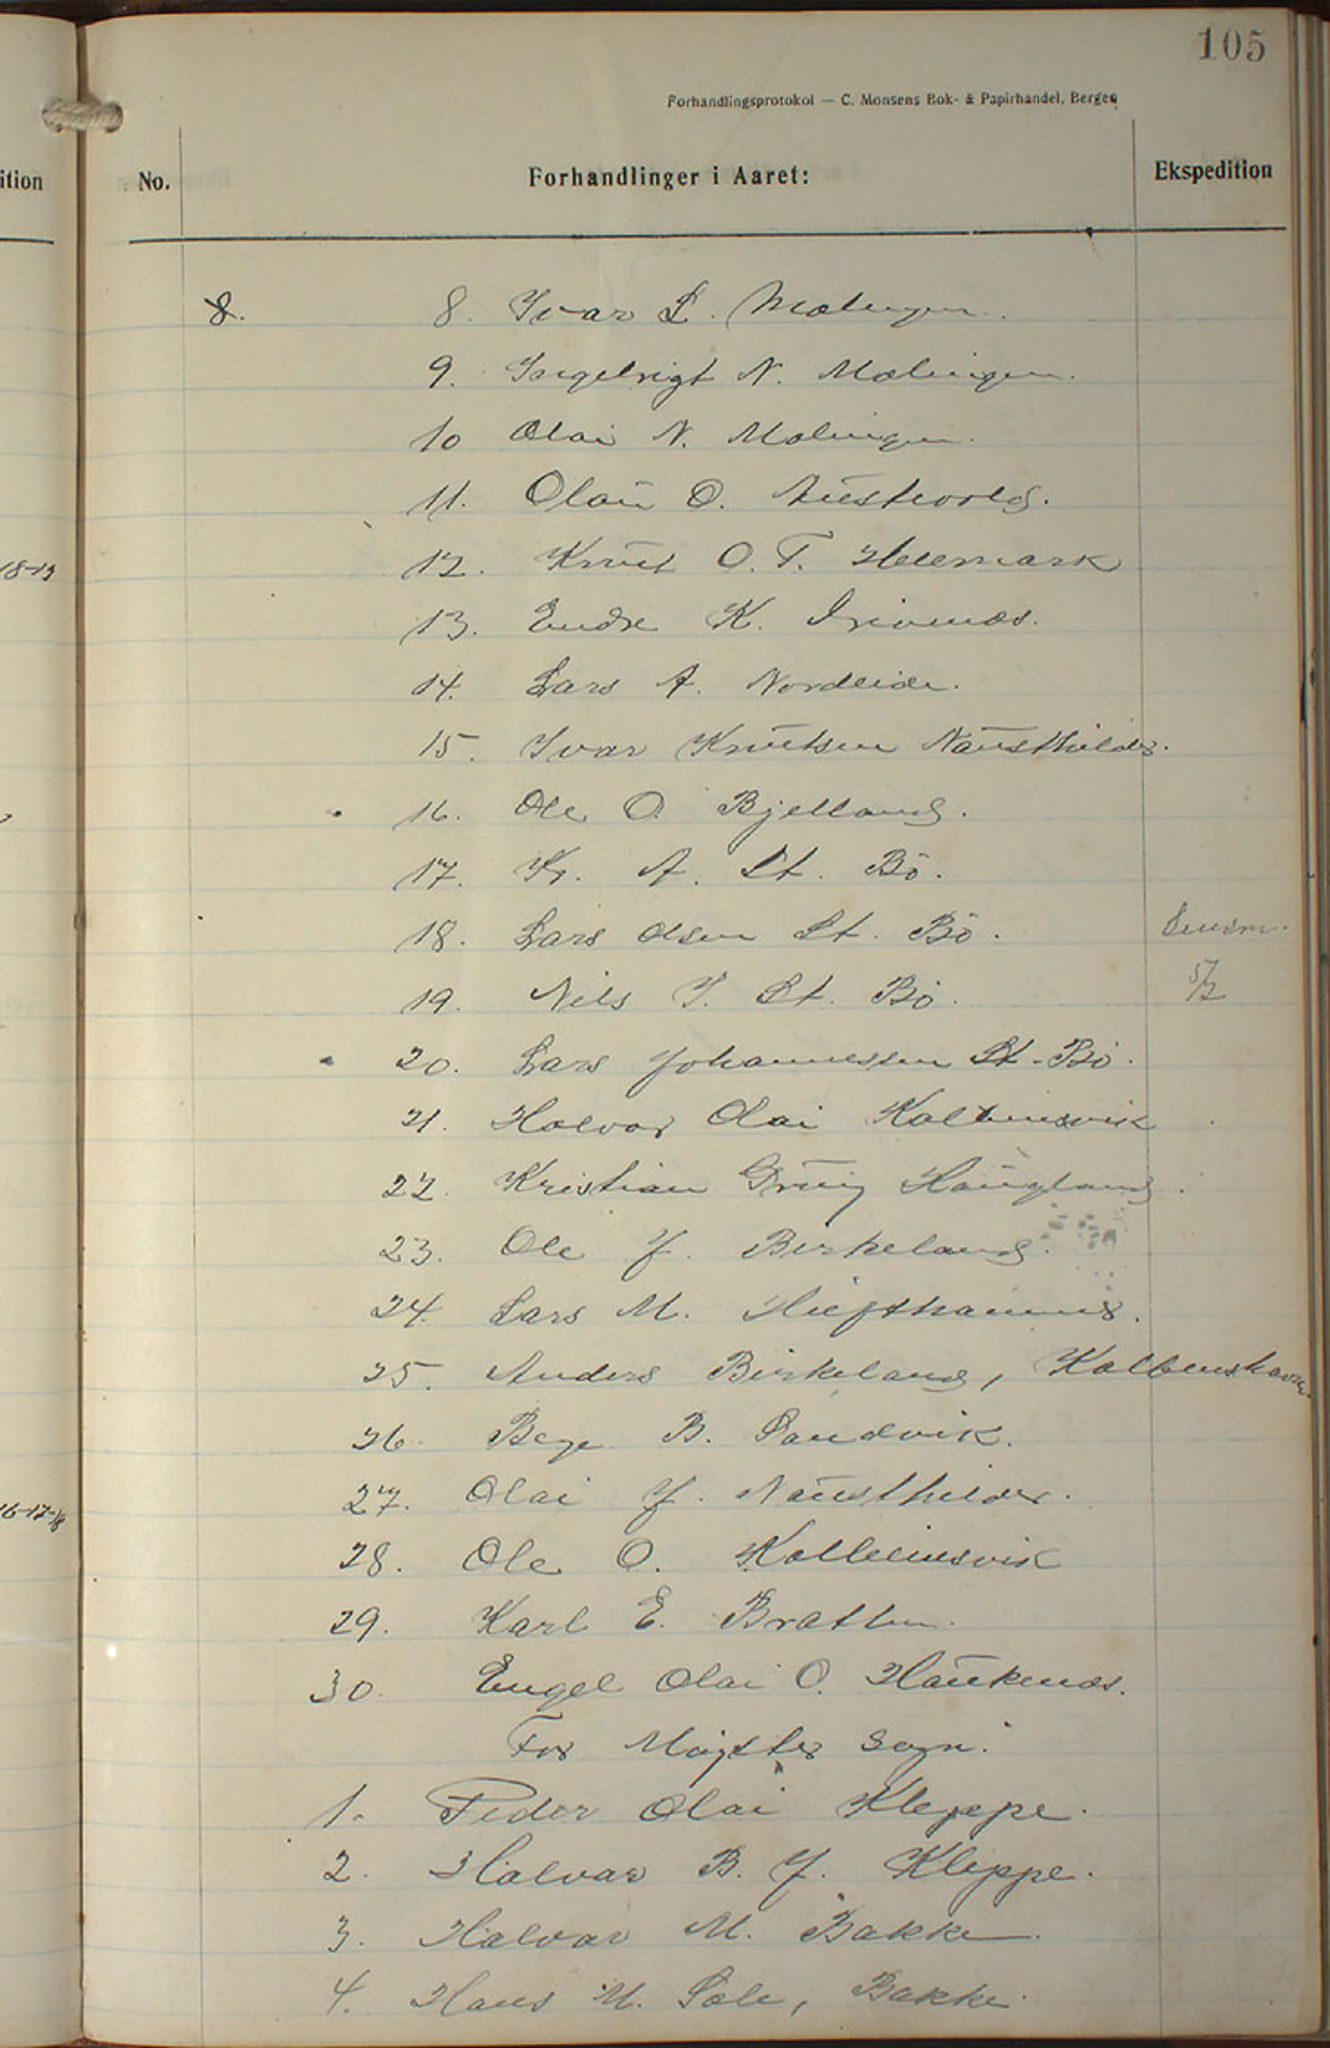 105
Forhandlingsprotokol — C. Monsens Bok- & Papirhandel, Bergen
ition No. Forhandlinger i Aaret: Ekspedition
8. 8. Ivar L. Mælingen.
9. Ingebrigt N. Mælingen.
10 Olai N. Mælingen.
11. Olai O. Austevold.
18-19
12. Knut O. T. Hevmark
13. Endre K. Drivenæs.
14. Lars A. Nordeide.
15. Ivar Knutsen Nausthelder.
16. Ole O. Bjelland.
17. Kr. A. St. Bö.
18. Lars Olsen St. Bö. Lensm.
19. Nils I. St. Bö. 5/2
20. Lars Johannessen St. Bö.
21. Halvor Olai Kolbeinsvik
22. Kristian Grung Haugland.
23. Ole J. Birkeland.
24. Lars M. Hufthammer.
25. Anders Birkeland, Kolbenshavn.
26. Berge B. Sandvik.
27. Olai J. Nausthelder.
16-17-18
28. Ole O. Kolbeinsvik
29. Karl E. Bratten.
30. Engel Olai O. Haukenæs.
For Møgster Sogn.
1. Peder Olai Kleppe.
2. Halvar B. J. Kleppe.
3. Halvar M. Bakke.
4. Hans M. Sæle, Bakke.